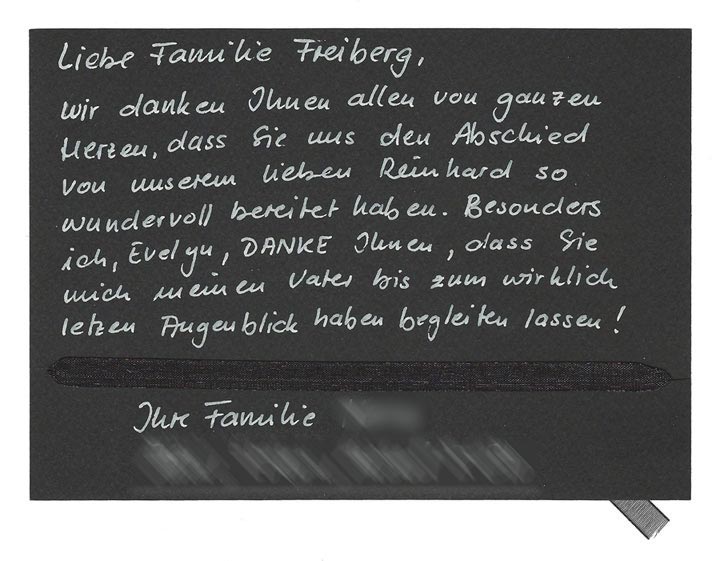 Liebe Familie Freiberg,
wir danken Ihnen allen von ganzen
Herzen, dass Sie uns den Abschied
von unserem lieben Reinhard so
wundervoll bereitet haben. Besonders
ich, Evelyn, DANKE Ihnen, dass Sie
mich meinen Vater bis zum wirklich
letzen Augenblick haben begleiten lassen!
Ihre Familie